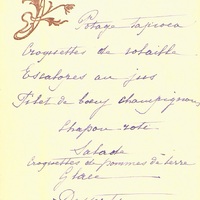 Potage tapioca
Croquettes de volaille
Escalopes au jus
Filet de boeuf champignons
Chapon roti
Salade
Croquettes de pommes de terre
Glace
Desserts